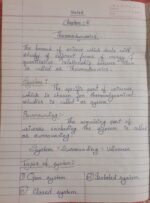 Notes
Chapter-4
Thermodynamics
The branch of science which deals with
study of different forms of energy &
quantitative relationship between them
is called as thermodynamics.
System:-
The specific part of universe,
which is chosen for thermodynamical
is called as system
Surrounding:-
The remaining part of
universe excluding the system is called
as surrounding
System + Surrounding = Universe
Types of system:-
1) Open system
3) Isolated system
2) Closed system